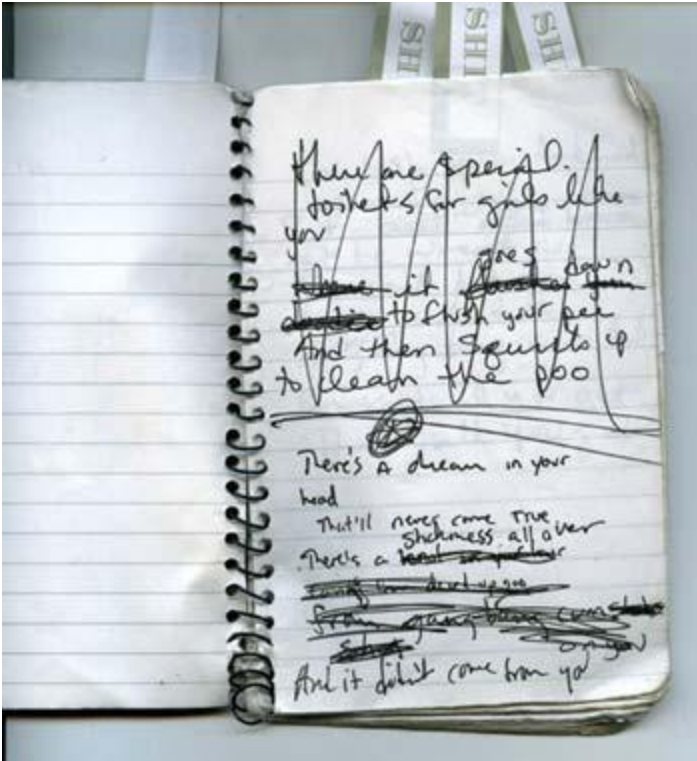 SHS
SHS
SHS
there are special
toilets for girls like
you
goes down
it
to flush your pee
And then squirts up
to clean the poo
There's A dream in your
head
That'll never come true
all over
There's a
from gangbang cum
on you
And it didn't come from you